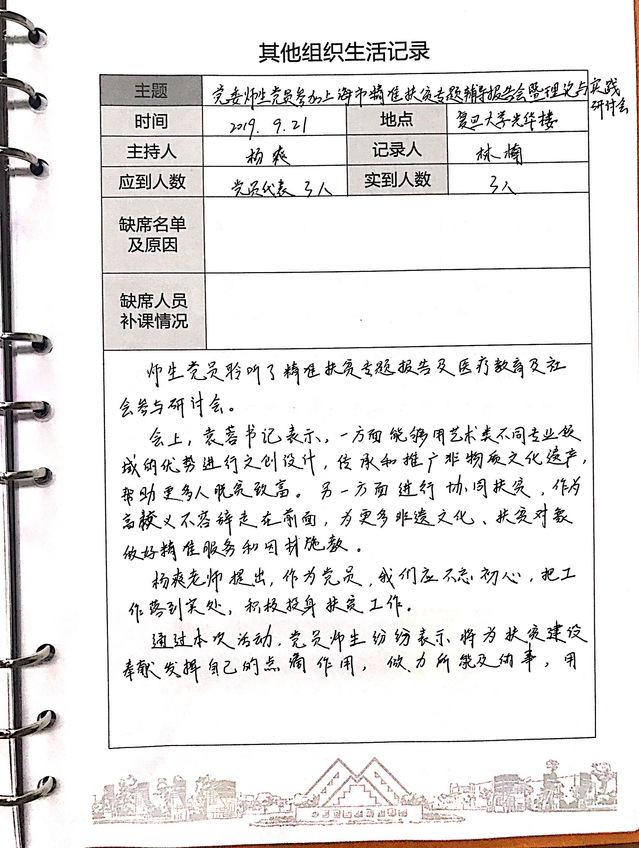 其他组织生活记录
主题 党委师生党员参加上海市精准扶贫专题辅导报告会暨理论与实践
研讨会
时间 2019. 9. 21 地点 复旦大学光华楼
主持人 杨爽 记录人 林楠
应到人数 党员代表 3人 实到人数 3人
缺席名单
及原因
缺席人员
补课情况
师生党员聆听了精准扶贫专题报告及医疗教育及社
会参与研讨会。
会上，袁蓉书记表示，一方面能够用艺术类不同专业领
域的优势进行文创设计，传承和推广非物质文化遗产，
帮助更多人脱贫致富。另一方面进行协同扶贫，作为
高校义不容辞走在前面，为更多非遗文化、扶贫对象
做好精准服务和因材施教。
杨爽老师提出，作为党员，我们应不忘初心，把工
作落到实处，积极投身扶贫工作。
通过本次活动，党员师生纷纷表示将为扶贫建设
奉献发挥自己的点滴作用，做力所能及的事，用